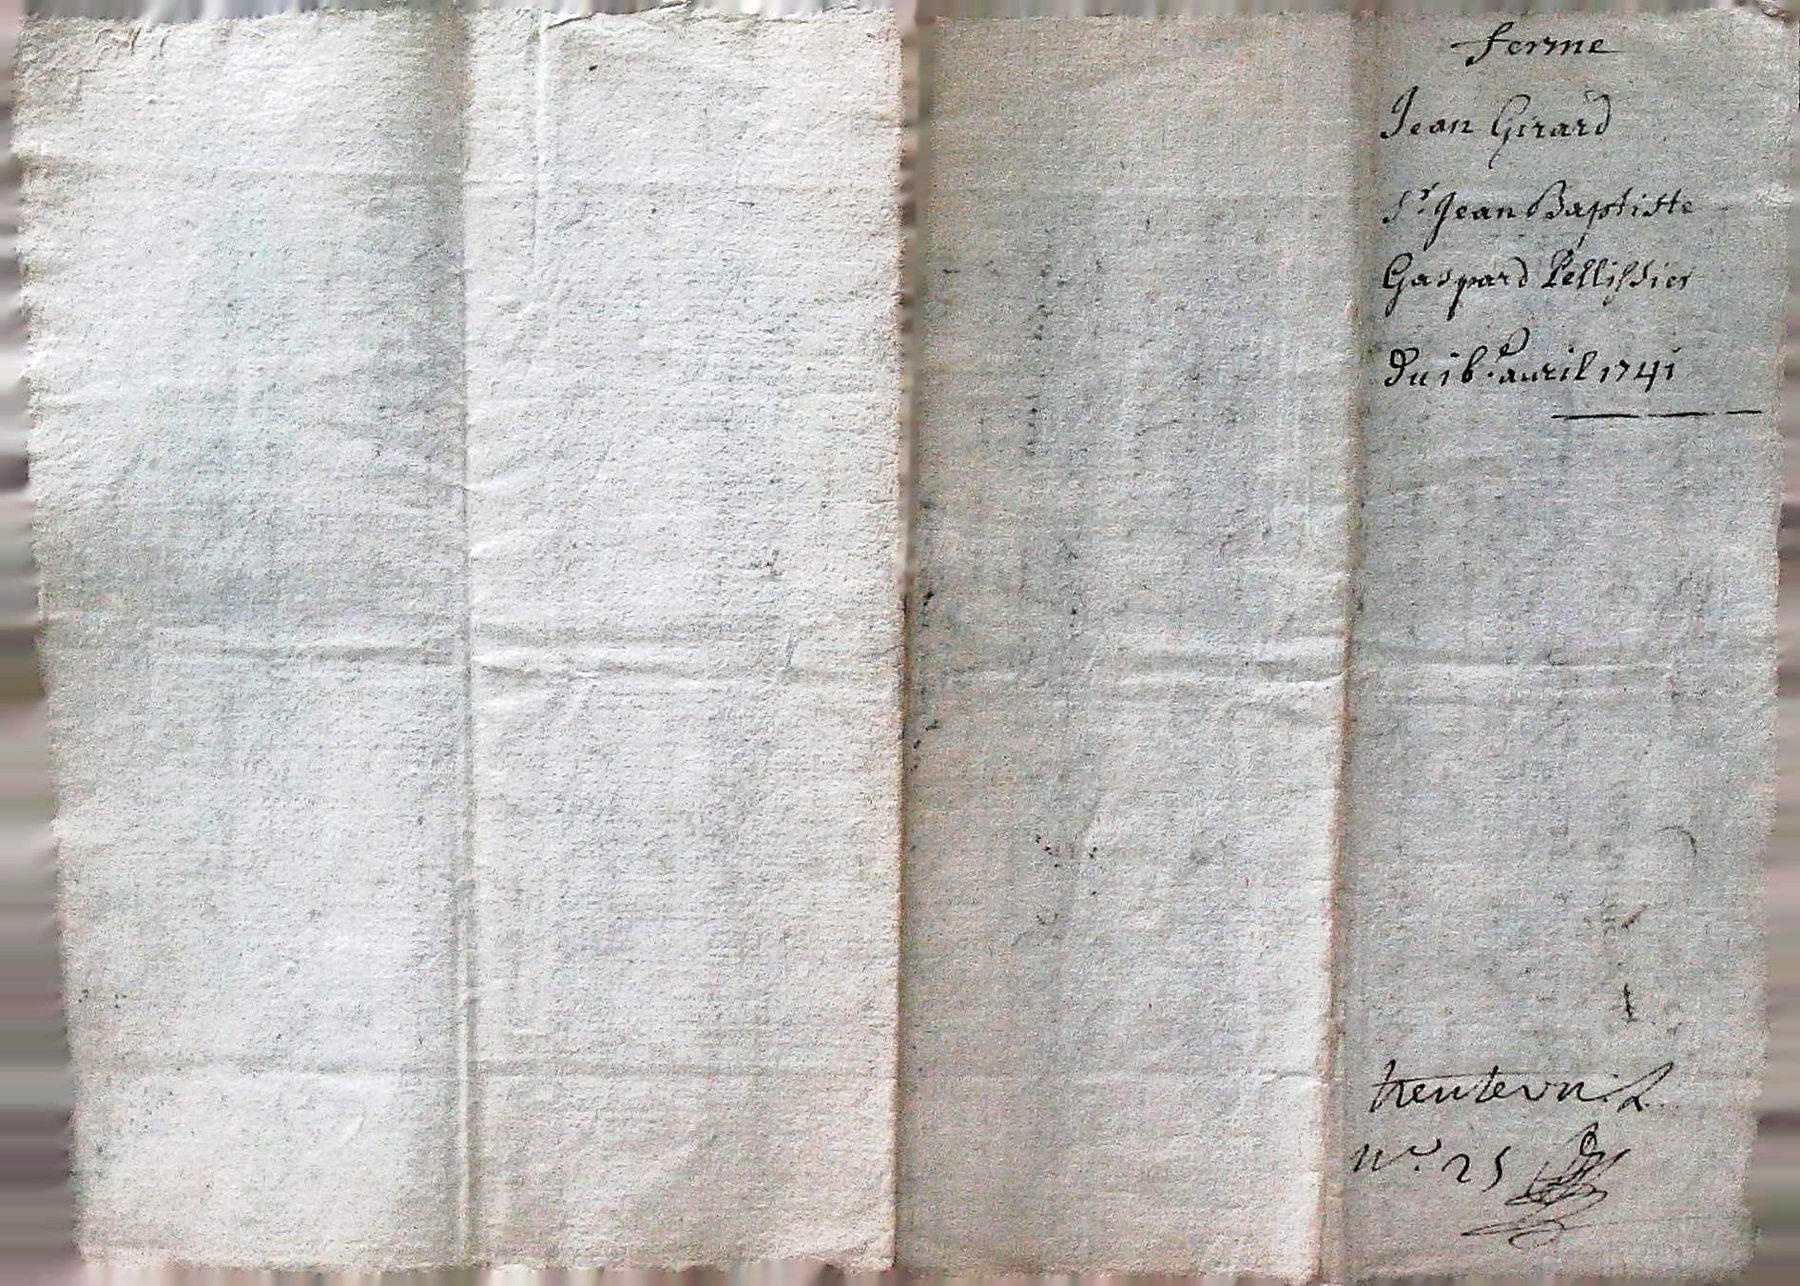 ferme
Jean Girard
Sr. Jean Baptiste
Gaspard Pellissier
Du 16.e auril 1741
trente vn L
no. 25